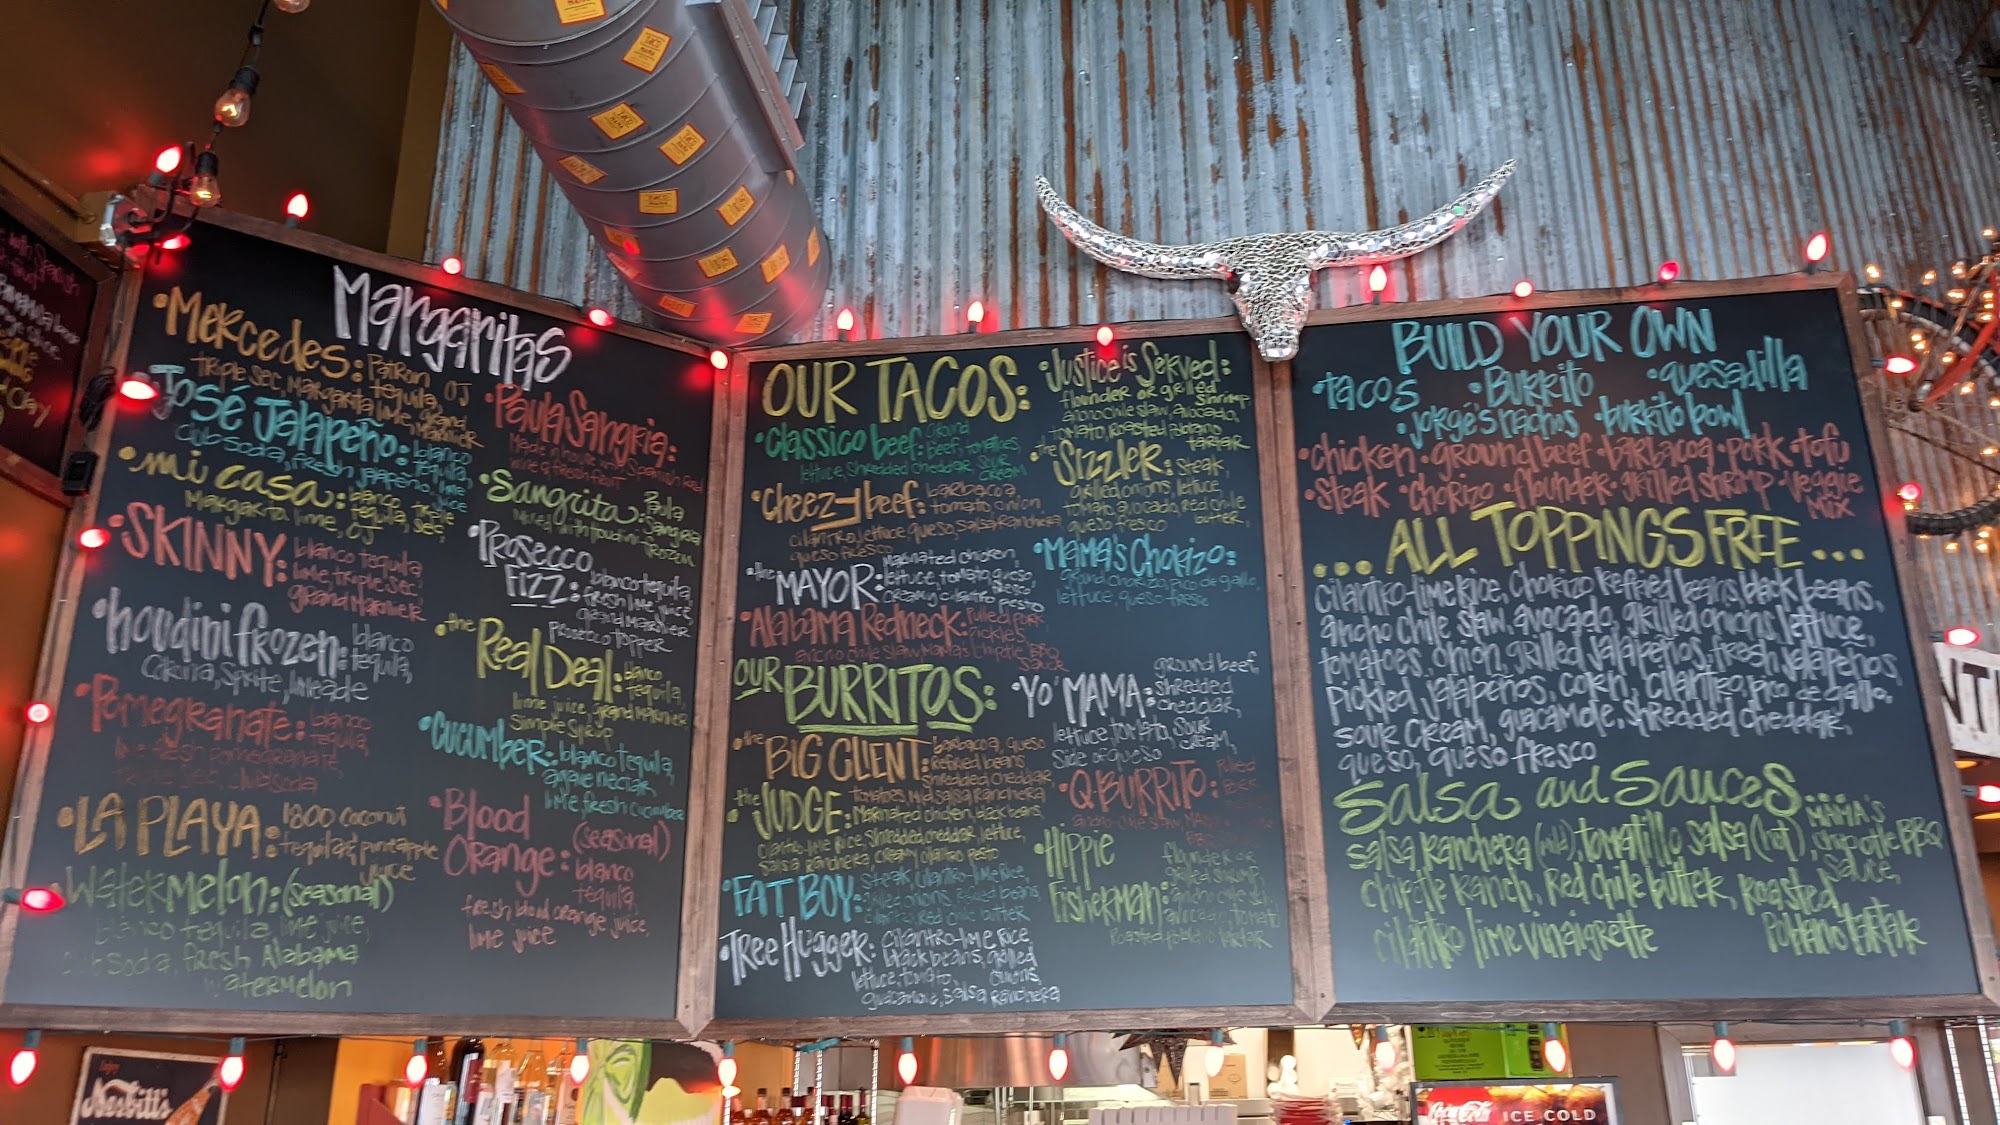 Margaritas
•Mercedes: Patron tequila, OJ
Triple Sec, Margarita lime, grand Marnier
José Jalapeño: blanco tequila, lime juice
Club soda, fresh jalapeño,
•mi casa: blanco tequila, triple sec,
Margarita lime, OJ
•SKINNY: blanco tequila,
lime, triple sec,
grand Marnier
•houdini frozen: blanco
tequila,
Corona, Sprite, limeade
•Pomegranate: blanco
tequila,
lime, fresh pomegranate,
triple sec, club soda
•LA PLAYA: 1800 coconut
tequila & pineapple
juice
•Watermelon: (seasonal)
blanco tequila, lime juice,
club soda, fresh Alabama
watermelon
•Paula Sangria:
Made in house with Spanish Red
wine & fresh fruit
•Sangrita: Paula
Sangria
Mixed with houdini frozen
•Prosecco
FIZZ: blanco tequila,
fresh lime juice,
grand Marnier
prosecco topper
•the Real Deal: blanco
tequila,
lime juice, grand Marnier
Simple Syrup
•Cucumber: blanco tequila,
agave nectar
lime, fresh cucumber
•Blood (seasonal)
Orange: blanco
tequila,
fresh blood orange juice,
lime juice
OUR TACOS:
•Classico beef: ground
beef, tomatoes,
lettuce, shredded cheddar, sour cream
•Cheezy beef: barbacoa,
tomato, onion,
cilantro, lettuce, queso, salsa ranchera
queso fresco
•the MAYOR: Marinated chicken,
lettuce, tomato, queso fresco
creamy cilantro pesto
•Alabama Redneck: Pulled pork,
pickles,
ancho chile slaw, Mama's chipotle BBQ
sauce
•Justice is Served:
flounder or grilled
shrimp
ancho chile slaw, avocado,
tomato, roasted poblano
tartar
•the Sizzler: steak,
grilled onions, lettuce
tomato, avocado, red chile
butter,
queso fresco
•Mama's Chorizo:
ground chorizo, pico de gallo,
lettuce, queso fresco
OUR BURRITOS:
•the BIG CLIENT: barbacoa, queso
refried beans,
shredded cheddar
tomatoes, mild salsa ranchera
•the JUDGE: Marinated chicken, black beans,
cilantro-lime rice, shredded cheddar, lettuce,
salsa ranchera, creamy cilantro pesto
•FAT BOY: steak, cilantro-lime rice,
grilled onions, refried beans,
cilantro, red chile butter
•Tree Hugger: cilantro-lime rice,
black beans, grilled
lettuce, tomato, onions,
guacamole, salsa ranchera
•YO' MAMA: ground beef,
shredded
cheddar,
lettuce, tomato, sour
cream,
side of queso
•Q-BURRITO: Pulled
pork
ancho chile slaw,
•Hippie
Fisherman: flounder or
grilled shrimp,
ancho chile slaw,
avocado, tomato
roasted poblano tartar
BUILD YOUR OWN
•tacos •Burrito •quesadilla
•jorgé's nachos •burrito bowl
•chicken •ground beef •barbacoa •pork •tofu
•steak •chorizo •flounder •grilled shrimp •veggie
mix
...ALL TOPPINGS FREE...
cilantro-lime rice, chorizo refried beans, black beans,
ancho chile slaw, avocado, grilled onions, lettuce,
tomatoes, onion, grilled jalapeños, fresh jalapeños,
pickled jalapeños, corn, cilantro, pico de gallo,
sour cream, guacamole, shredded cheddar,
queso, queso fresco
Salsa and Sauces...
salsa ranchera (mild), tomatillo salsa (hot), MAMA'S
chipotle BBQ
sauce,
chipotle ranch, red chile butter, roasted
poblano tartar
cilantro lime vinaigrette
TACO
MAMA
Enjoy
Nesbitt's
Coca-Cola ICE COLD